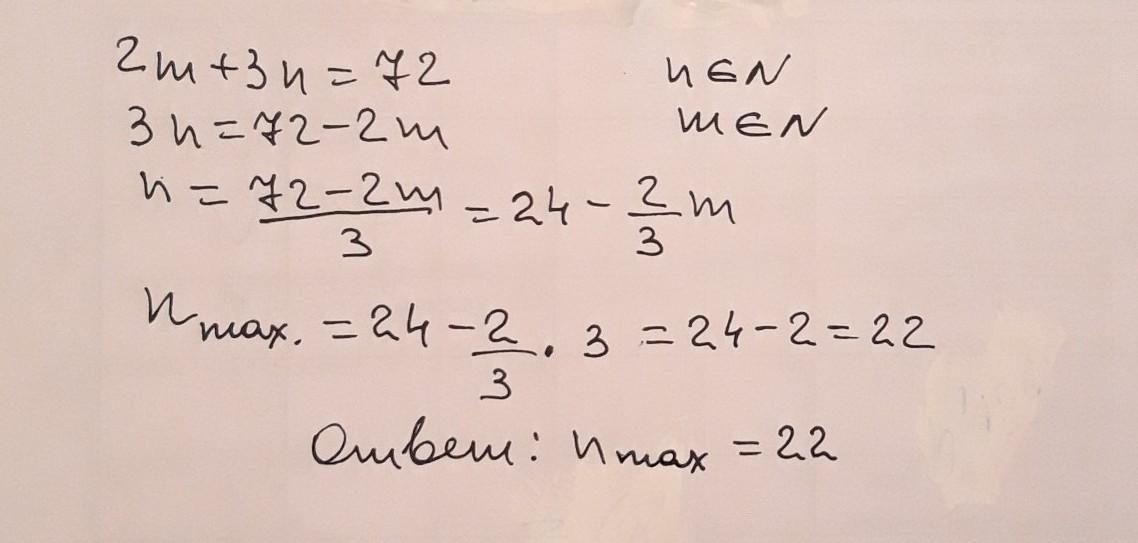 2m+3n=72 n∈N
3n=72-2m m∈N
n = \frac{72-2m}{3} = 24 - \frac{2}{3}m
n_{max.} = 24 - \frac{2}{3} · 3 = 24-2=22
Ответ: n_{max} = 22